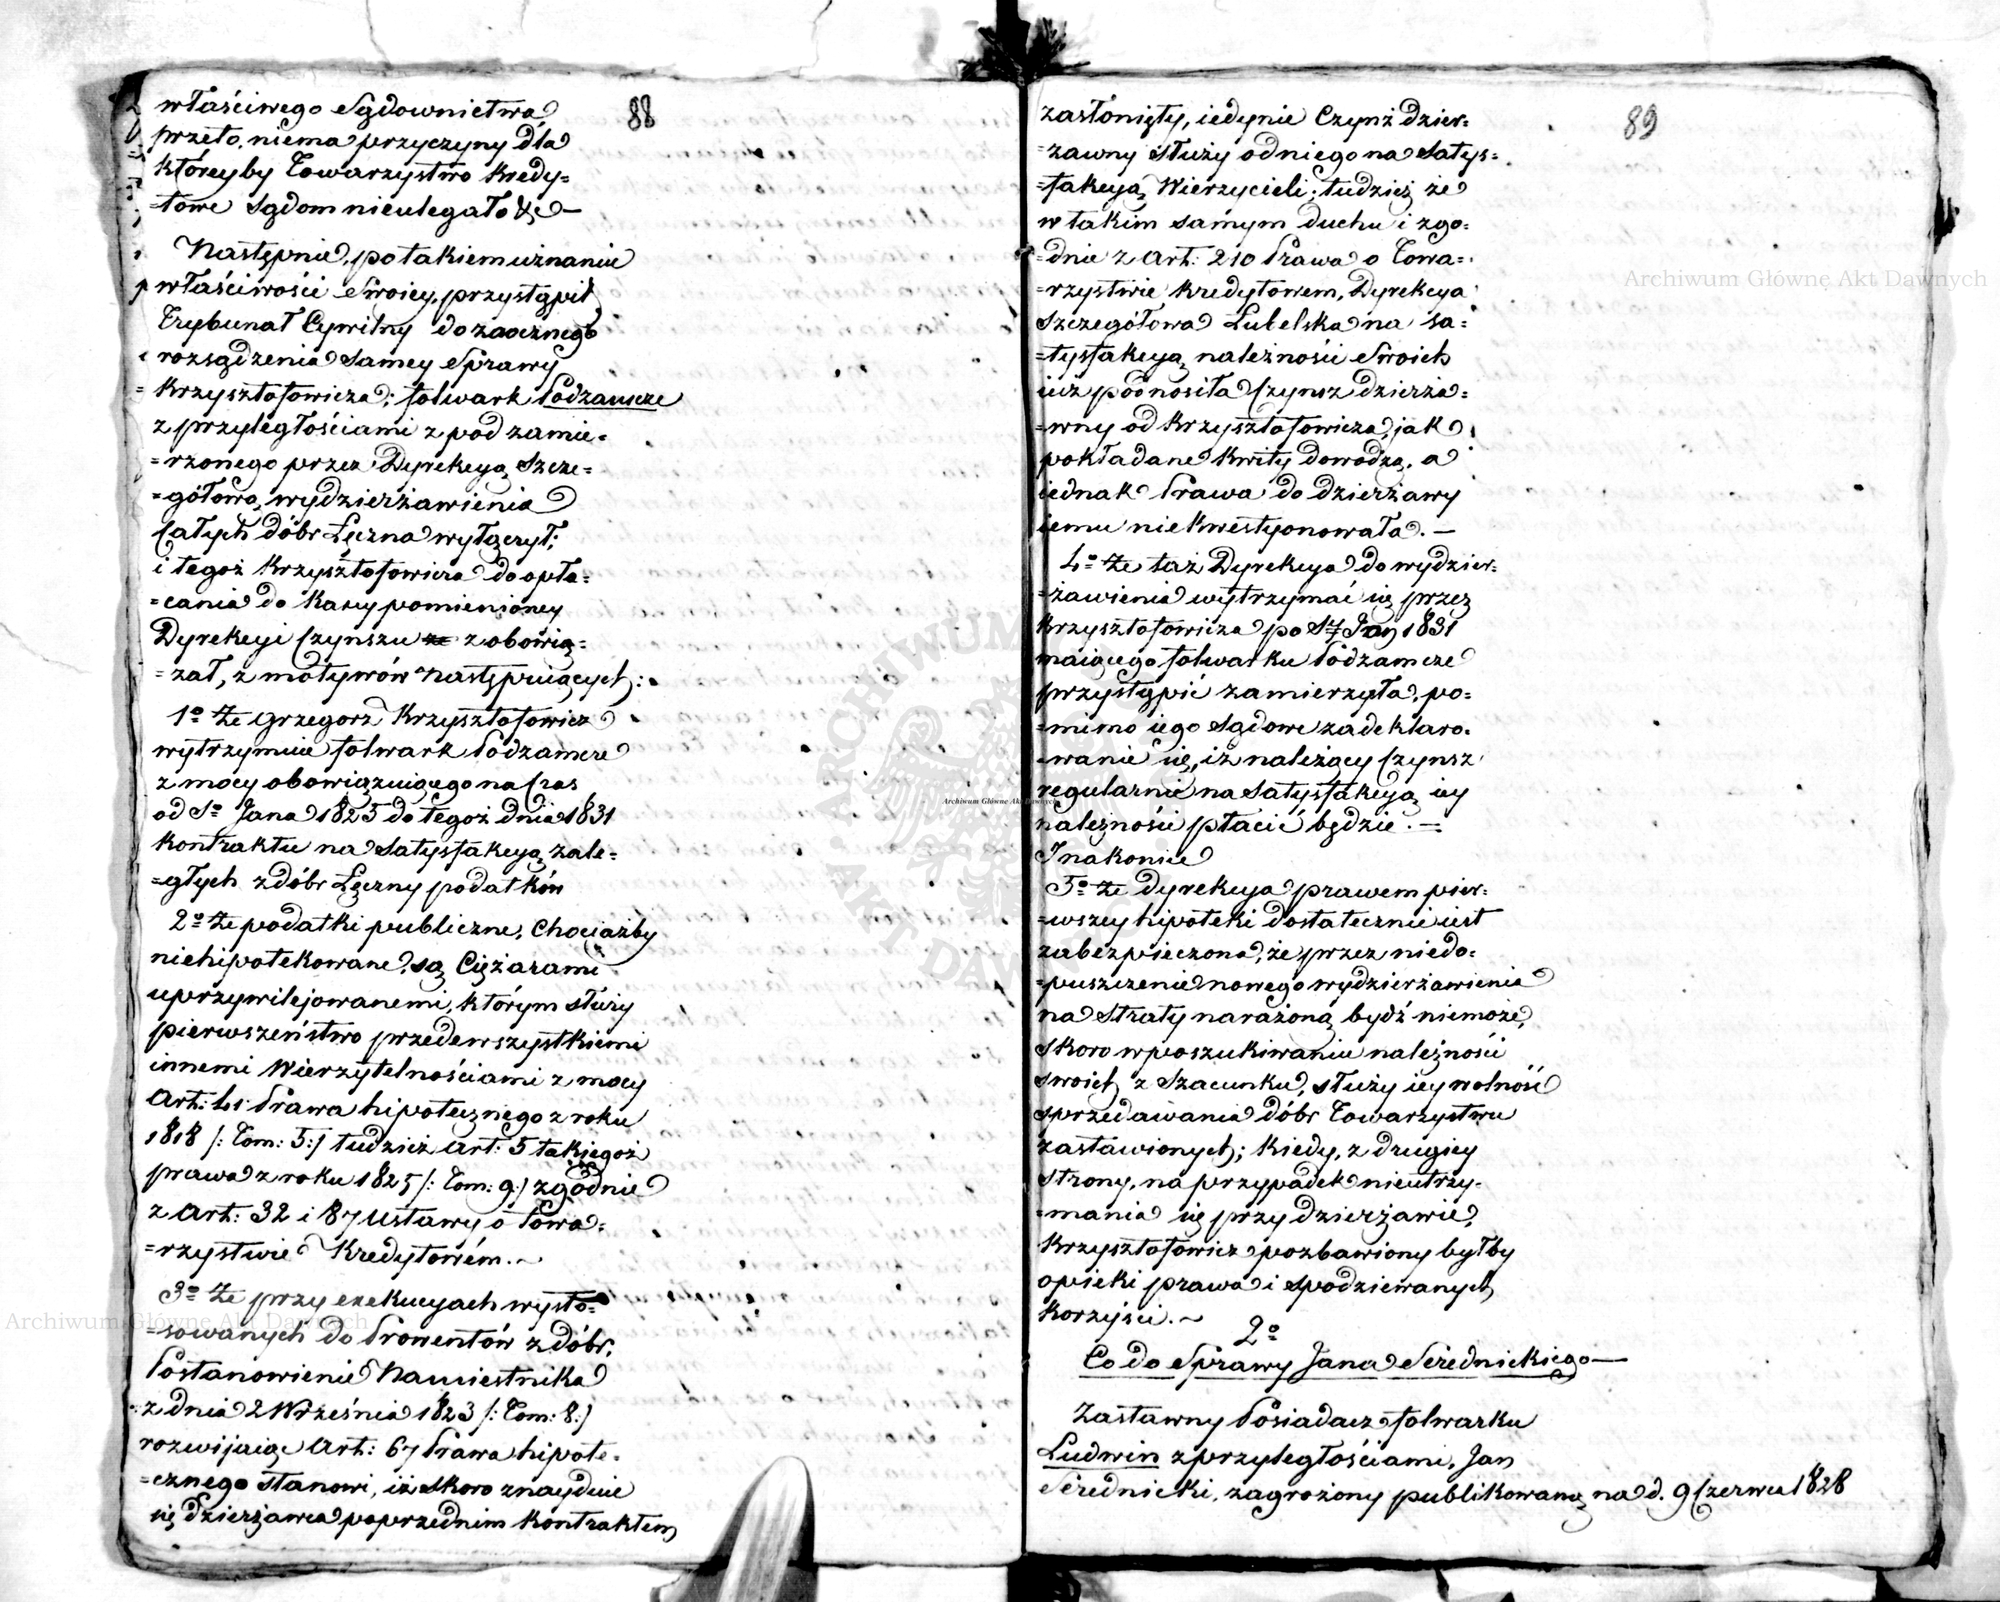 88
właściwego Sądownictwa,
przeto niema przyczyny dla
któreyby Towarzystwo Kredy=
=towe Sądom nieulegało &c —
Następnie, po takiem uznaniu
właściwości Swoiey, przystąpił
Trybunał Cywilny do zaocznego
rozsądzenia Samey Sprawy
Krzysztofowicza; folwark Podzamcze
z przyległościami z pod zamie=
=rzonego przez Dyrekcyą Szcze=
=gółową, wydzierżawienia
Całych dóbr Łęczna wyłączył;
i tegoż Krzysztofowicza do opła=
=cania do Kassy pomienioney
Dyrekcyi Czynszu z obowią=
=zał, z motywów następuiących:
1º że Grzegorz Krzysztofowicz
wytrzymuie folwark Podzamcze
z mocy obowiązuiącego na Czas
od Sº Jana 1825 do tegoż dnia 1831
Kontraktu na Satysfakcyą zale=
=głych z dóbr Łęczny podatków
2º że podatki publiczne, Chociażby
niehipotekowane, są Ciężarami
uprzywilejowanemi, którym służy
pierwszeństwo przedewszystkiemi
innemi Wierzytelnościami z mocy
Art: 41 Prawa hipotecznego z roku
1818 /: Tom: 5:/ tudzież Art: 5 takiegoż
prawa z roku 1825 /: Tom: 9:/ zgodnie
z Art: 32 i 87 Ustawy o Towa=
=rzystwie Kredytowém. ~
3º że przy exekucyach wysto=
=sowanych do Prowentów z dóbr,
Postanowienie Namiestnika
z dnia 2 Września 1823 /: Tom: 8:/
rozwijaiąc Art: 67 Prawa hipote=
=cznego stanowi, iż skoro znayduie
się dzierżawca poprzednim Kontraktem
89
zasłonięty, iedynie Czynż dzier=
=zawny służy od niego na Satys=
=fakcyą Wierzycieli; tudzież że
w takim samym duchu i zgo=
=dnie z Art: 210 Prawa o Towa=
=rzystwie Kredytowem, Dyrekcya
Szczegółowa Lubelska na Sa=
=tysfakcyą należności Swoich
iuż podnosiła Czynsz dzierża=
=wny od Krzysztofowicza, jak
pokładane Kwity dowodzą, a
iednak Prawa do dzierżawy
iemu niekwestyonowała. —
4º że taż Dyrekcya do wydzier=
=żawienia wytrzymać się przez
Krzysztofowicza po Sty Jan 1831
maiącego folwarku Podzamcze
przystąpić zamierzyła, po=
=mimo iego Sądowe zadeklaro=
=wanie się, iż należący Czynsz
regularnie na Satysfakcyą iey
należności płacić będzie. =
Inakoniec
5º że Dyrekcya prawem pier=
=wszey hipoteki dostatecznie iest
zabezpieczona, że przez niedo=
=puszczenie nowego wydzierżawienia
na straty narażoną bydź niemoże,
skoro w poszukiwaniu należności
swoich z Szacunku, służy iey wolność
sprzedawania dóbr Towarzystwu
zastawionych; Kiedy, z drugiey
strony, na przypadek nieutrzy=
=mania się przy dzierżawie,
Krzysztofowicz pozbawiony byłby
opieki prawa i spodziewanych
Korzyści. ~
2º
Co do Sprawy Jana Serednickiego —
Zastawny Posiadacz folwarku
Ludwin z przyległościami, Jan
Serednicki, zagrożony publikowaną na d. 9 Czerwca 1828
Archiwum Główne Akt Dawnych
Archiwum Główne Akt Dawnych
Archiwum Główne Akt Dawnych
ARCHIWUM GŁÓWNE AKT DAWNYCH